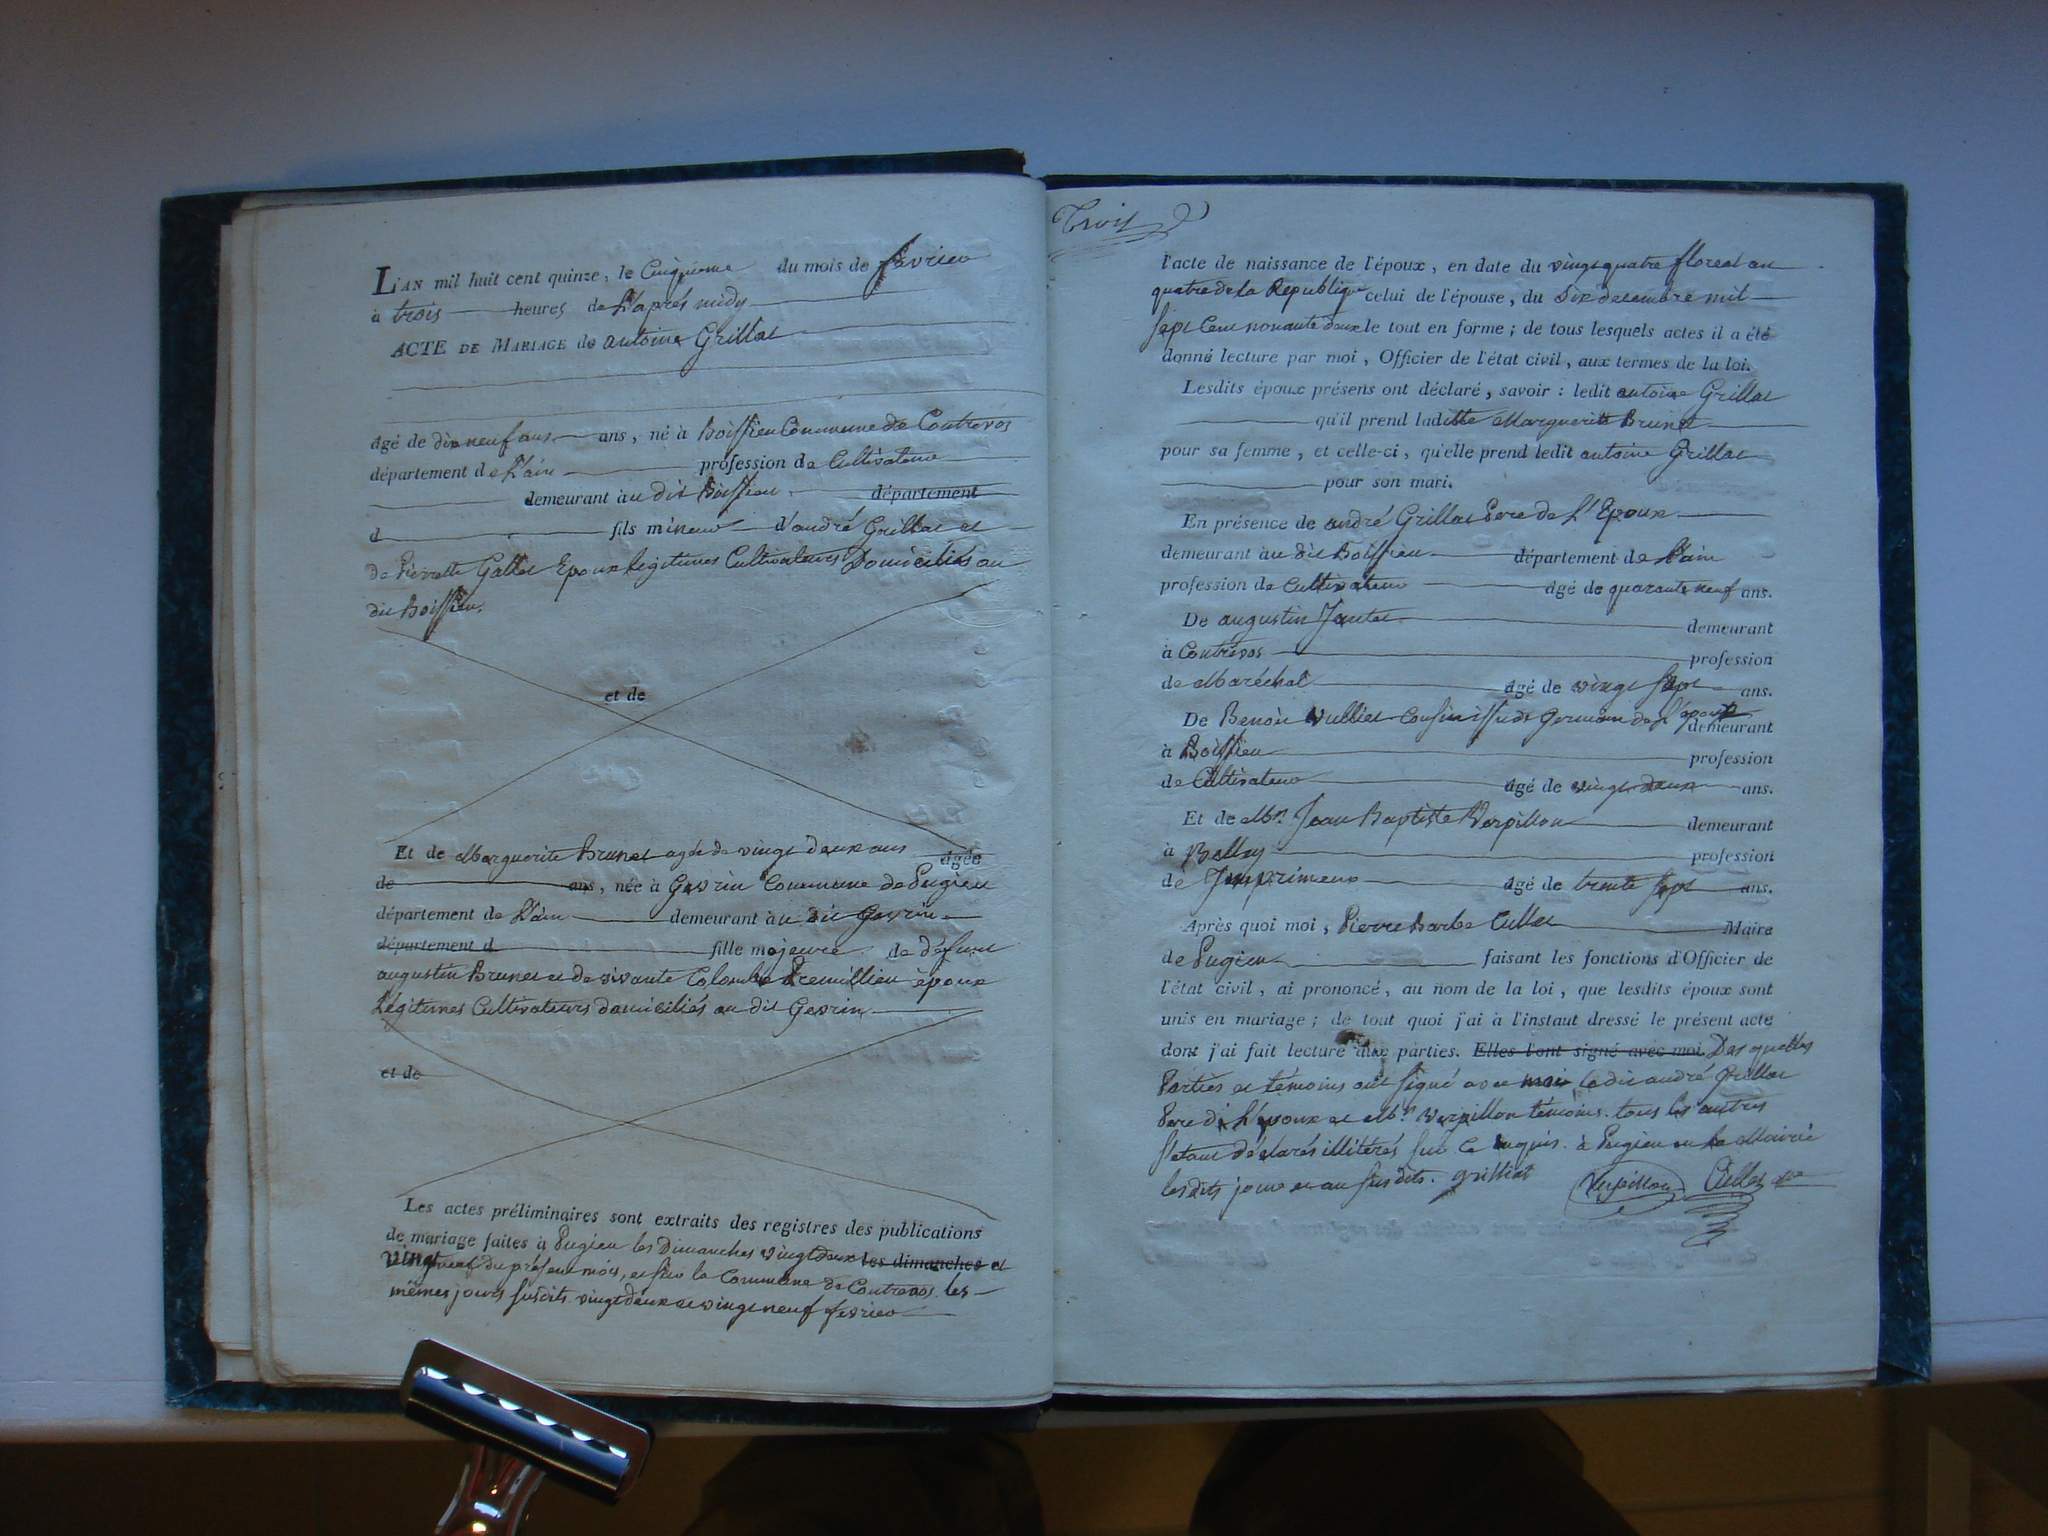 L'AN mil huit cent quinze, le Cinquieme du mois de fevrier
à trois heures de L'aprés midy
ACTE DE MARIAGE de antoine Grillat
agé de dix neuf ans ans, né à Boissieu Commune de Contrevos
département de L'ain profession de Cultivateur
demeurant àu dit Boissieu département
d fils mineur d'andré Grillat et
de Pierrette Gallet Epoux legitimes Cultivateurs Domiciliés au
dit Boissieu.
et de
Et de Marguerite Brunet agée de vingt deux ans agée
de ans, née à Gevrin Commune de Pugieu
département de L'ain demeurant àu dit Gevrin
département d fille majeure de défunt
augustin Brunet et de vivante Colombe Premillieu époux
Légitimes Cultivateurs domiciliés au dit Gevrin
et de
Les actes préliminaires sont extraits des registres des publications
de mariage faites à Pugieu les Dimanches vingt deux les dimanches et
vingt neuf du présent mois, et sur la Commune de Contrevos les
mêmes jours susdits vingt deux et vingt neuf fevrier
Trois
l'acte de naissance de l'époux, en date du vingt quatre floreal an
quatre de la Republique celui de l'épouse, du Six decembre mil
sept Cent nonante deux le tout en forme; de tous lesquels actes il a été
donné lecture par moi, Officier de l'état civil, aux termes de la loi.
Lesdits époux présens ont déclaré, savoir: ledit antoine Grillat
qu'il prend laditte Marguerite Brunet
pour sa femme, et celle-ci, qu'elle prend ledit antoine Grillat
pour son mari.
En présence de andré Grillat Pere de L'Epoux
demeurant àu dit Boissieu département de L'ain
profession de Cultivateur agé de quarante neuf ans.
De augustin Jantet demeurant
à Contrevos profession
de Maréchal agé de vingt sept ans.
De Benoit Vulliet Cousin issu de Germain de l'époux demeurant
à Boissieu profession
de Cultivateur agé de vingt deux ans.
Et de Mr. Jean Baptiste Verpillon demeurant
à Belley profession
de Imprimeur agé de trente sept ans.
Après quoi moi, Pierre Barbe Cullet Maire
de Pugieu faisant les fonctions d'Officier de
l'état civil, ai prononcé, au nom de la loi, que lesdits époux sont
unis en mariage; de tout quoi j'ai à l'instant dressé le présent acte
dont j'ai fait lecture aux parties. Elles l'ont signé avec moi Des quelles
Parties et témoins ont signé avec moi le dit andré Grillat
Pere de L'époux et Mr. Verpillon témoins. tous les autres
s'etant déclarés illiterés sur ce enquis. à Pugieu en la Mairie
lesdits jour et an susdits. grilliat Verpillon Cullet